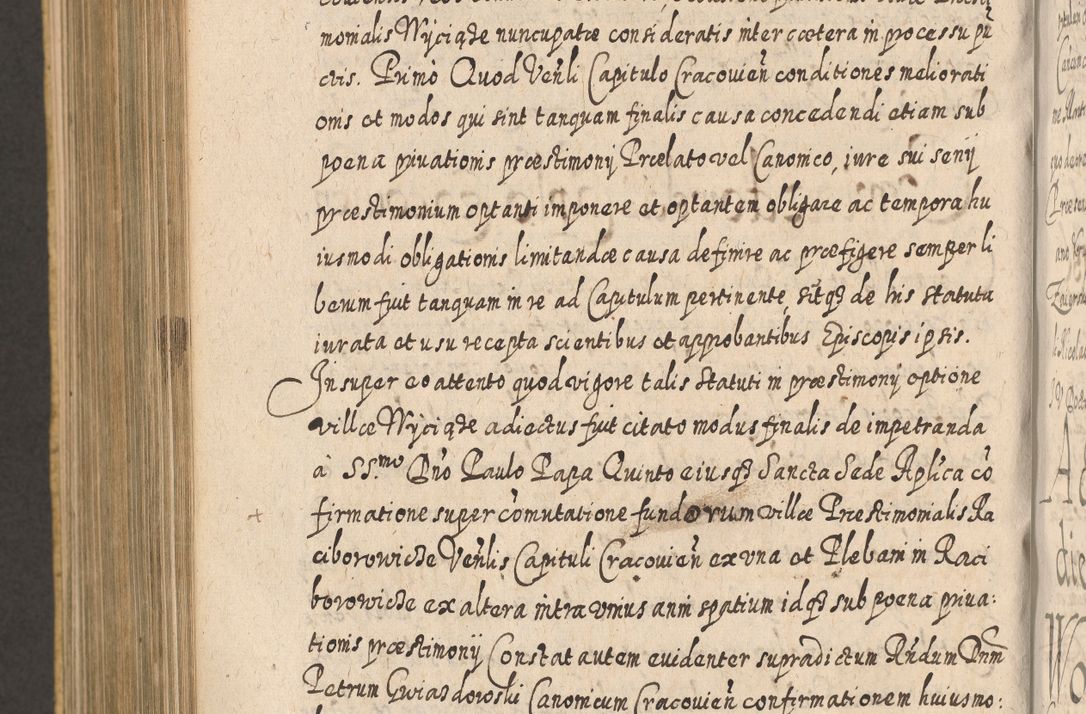 monialis Wyciąże nuncupatæ consideratis inter cœtera in processu pũ
ctis. Primò Quod Veñli Capitulo Cracovieñ conditiones meliorati
onis et modos qui sint tanquam finalis causa concedendi etiam sub
poena privationis præstimonij Prælato vel Canonico, iure sui senij
præstimonium optanti imponere et optantem obligare ac tempora hu
iusmodi obligationis limitandæ causa definire ac præfigere semper li
berum fuit tanquam in re ad Capitulum pertinente, sitq₃ de his statuta
iurata et usu recepta scientibus et approbantibus Episcopis ipsis.
Insuper eo attento quod vigore talis statuti in præstimonij optione
villæ Wyciąże adiectus fuit citato modus finalis de impetranda
à SS.mo Dño Paulo Papa Quinto eiusq₃ Sancta Sede Aplica cõ
firmatione super cõmutatione fundorum villæ Præstimonialis Ra
ciborowicze Veñlis Capituli Cracovieñ ex una et Plebani in Raci
borowicze ex altera intra unius anni spatium idq₃ sub poena priva:
tionis præstimonij Constat autem evidenter supradictum Rñdum Dnm̃
Petrum Gwiazdowski Canonicum Cracovieñ confirmationem huiusmo: